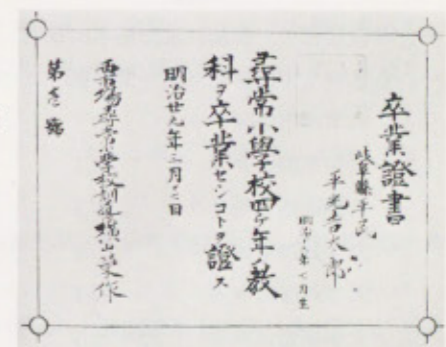 卒業證書
岐阜縣平民
平光吉太郎
明治　年七月生
尋常小學校四ヶ年ノ教
科ヲ卒業セシコトヲ證ス
明治廿九年三月　日
尋常小學校訓導横山　作
第壱號